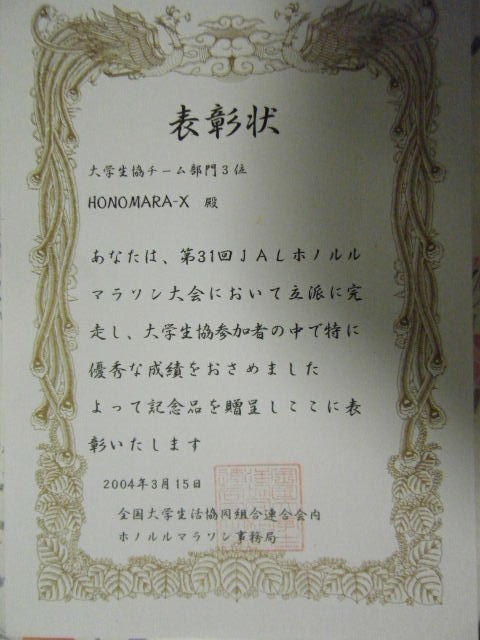 表彰状
大学生協チーム部門3位
HONOMARA-X 殿
あなたは、第31回JALホノルル
マラソン大会において立派に完
走し、大学生協参加者の中で特に
優秀な成績をおさめました
よって記念品を贈呈しここに表
彰いたします
2004年3月15日
全国大学生活協同組合連合会内
ホノルルマラソン事務局